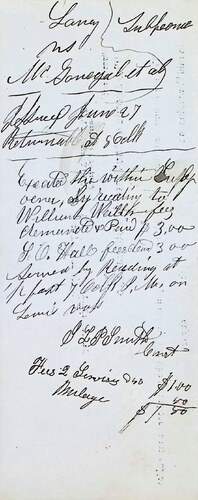 Laney } Subpoena
vs
McGonegal et al
Issued June 27
Returnable at 8 oclk
Execute the within Subp
oena, by reading to
William Walth fees
demanded & Paid $3.00
S. O. Hall fees dem 3 00
Served by Reading at
½ past 7 oclk P. M. on
Lewis
S L P Smith
Const
Fees 2 Services $1.00
Mileage 50
$1.50